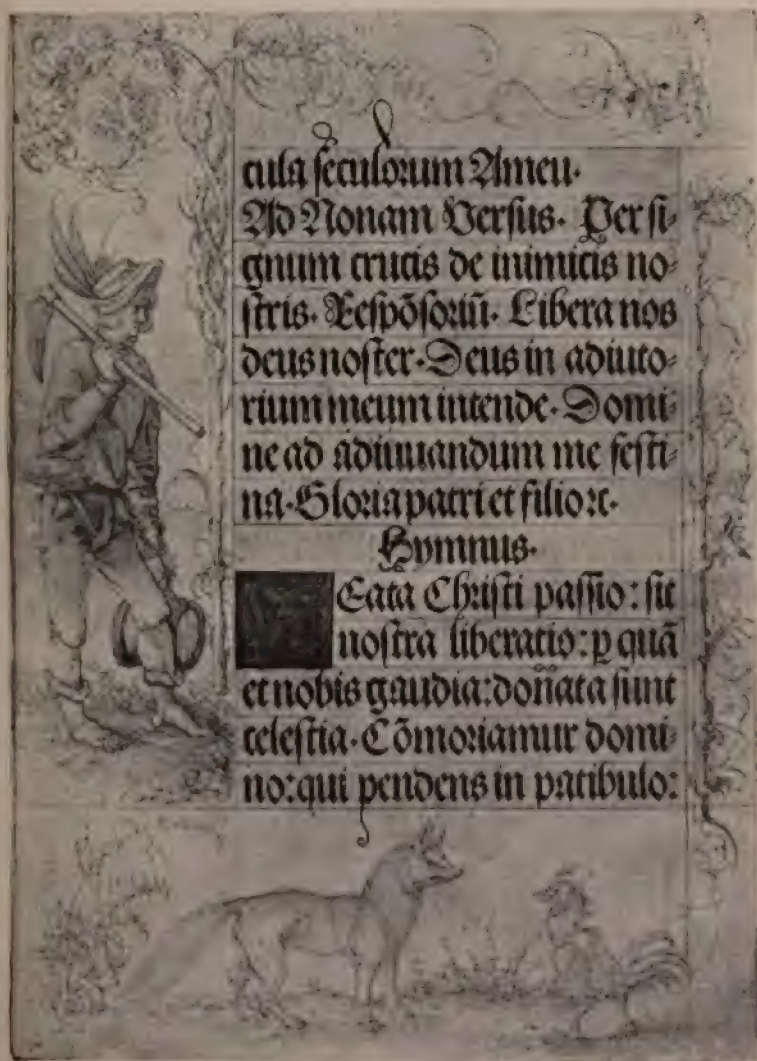 cula seculorum Amen.
Ad Nonam Versus. Per si-
gnum crucis de inimicis no-
stris. Respōsoriū. Libera nos
deus noster. Deus in adiuto-
rium meum intende. Domi-
ne ad adiuuandum me festi-
na. Gloria patri et filio ꝛc.
Hymnus.
BEata Christi passio: sit
nostra liberatio: ꝑ quā
et nobis gaudia: doñata sunt
celestia. Cōmoriamur domi-
no: qui pendens in patibulo: